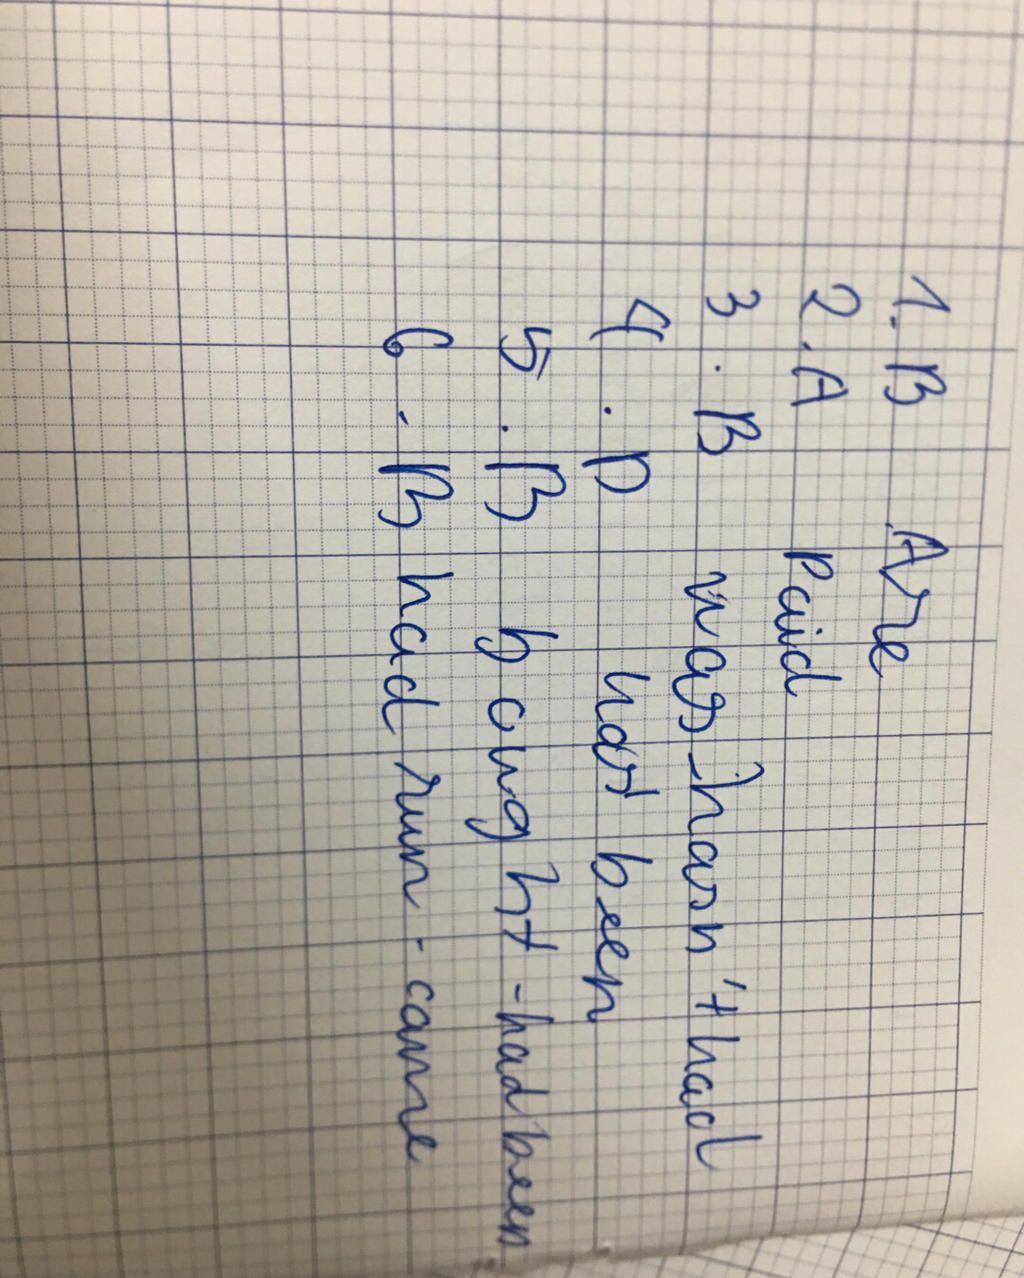 1. B Are
2. A Paid
3. B was hasn't had
4. D has been
5. B bought - had been
6. B had run - came